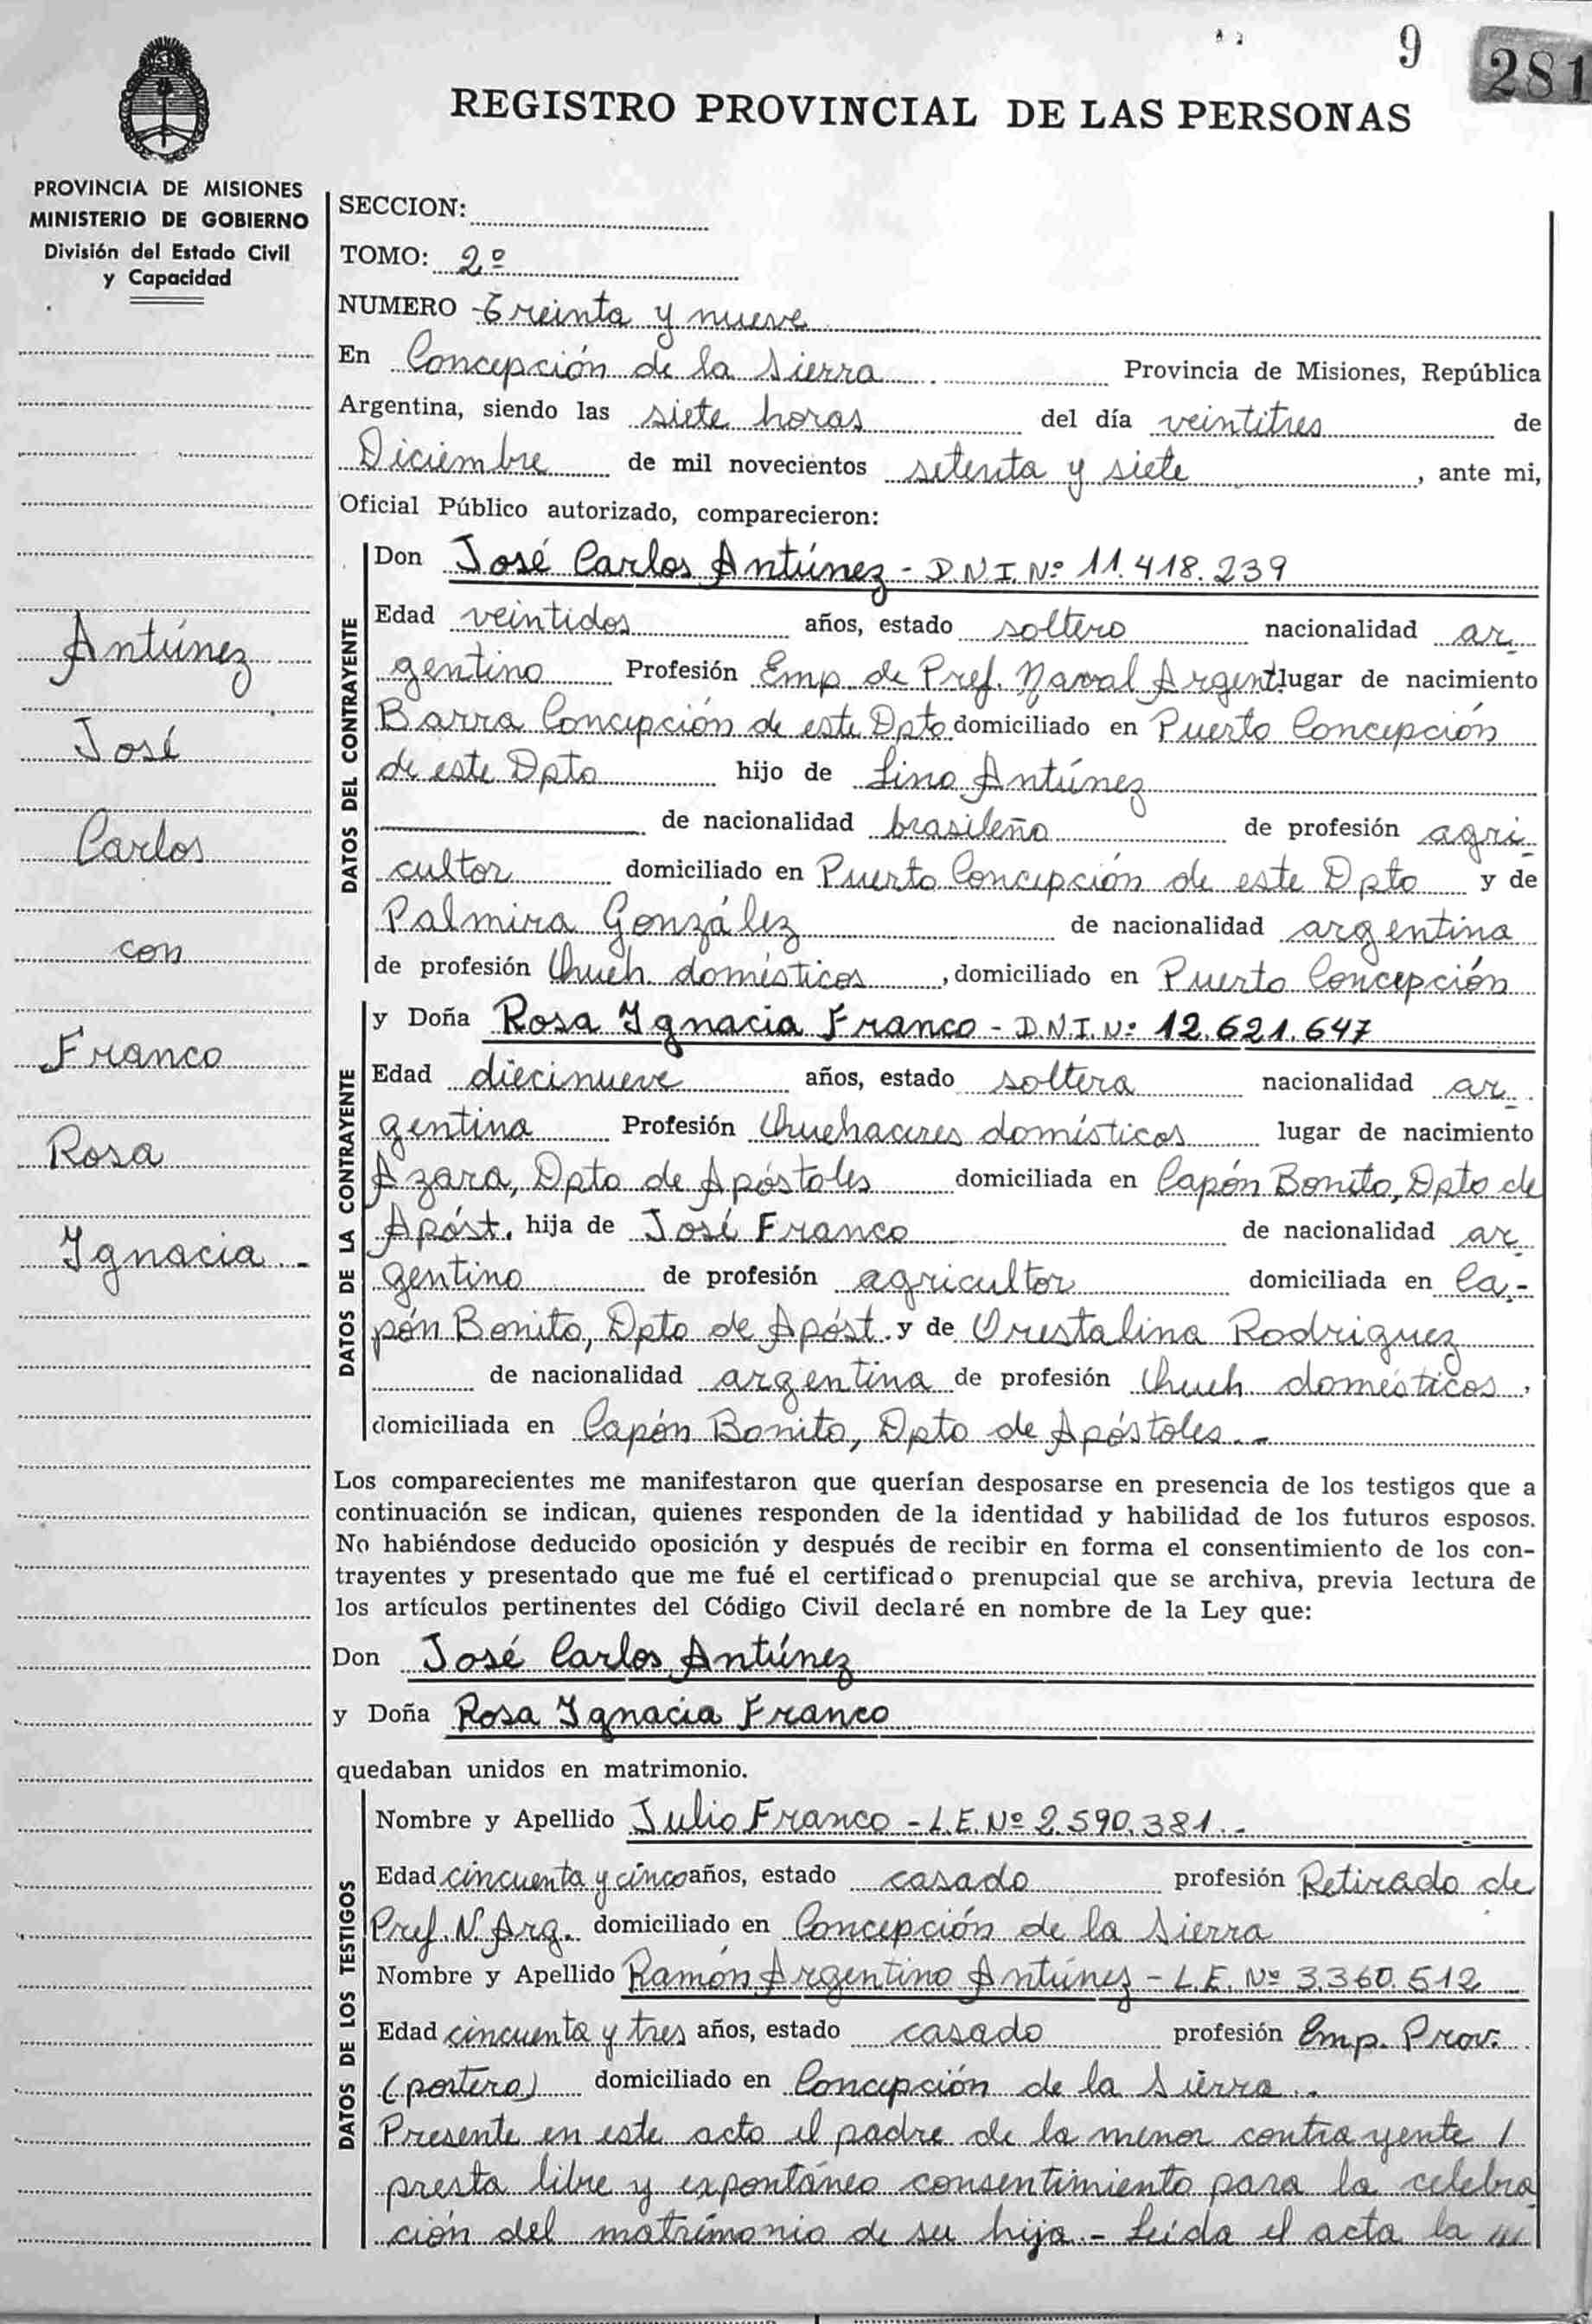 9
281
REGISTRO PROVINCIAL DE LAS PERSONAS
PROVINCIA DE MISIONES
MINISTERIO DE GOBIERNO
División del Estado Civil
y Capacidad
SECCION:
TOMO: 2º
NUMERO Treinta y nueve
En Concepción de la Sierra Provincia de Misiones, República
Argentina, siendo las siete horas del día veintitres de
Diciembre de mil novecientos setenta y siete, ante mi,
Oficial Público autorizado, comparecieron:
DATOS DEL CONTRAYENTE
Don José Carlos Antúnez - D.N.I. Nº 11.418.239
Edad veintidos años, estado soltero nacionalidad ar
gentino Profesión Emp de Pref. Naval Argent lugar de nacimiento
Barra Concepción de este Dpto domiciliado en Puerto Concepción
de este Dpto hijo de Lino Antúnez
de nacionalidad brasileño de profesión agri
cultor domiciliado en Puerto Concepción de este Dpto y de
Palmira González de nacionalidad argentina
de profesión Queh. domésticos, domiciliado en Puerto Concepción
DATOS DE LA CONTRAYENTE
y Doña Rosa Ignacia Franco - D.N.I. Nº 12.621.647
Edad diecinueve años, estado soltera nacionalidad ar
gentina Profesión Quehaceres domésticos lugar de nacimiento
Azara, Dpto de Apóstoles domiciliada en Capón Bonito, Dpto de
Apóst. hija de José Franco de nacionalidad ar
gentino de profesión agricultor domiciliada en Ca-
pón Bonito, Dpto de Apóst. y de Orestalina Rodriguez
de nacionalidad argentina de profesión Queh domésticos,
domiciliada en Capón Bonito, Dpto de Apóstoles.-
Los comparecientes me manifestaron que querían desposarse en presencia de los testigos que a
continuación se indican, quienes responden de la identidad y habilidad de los futuros esposos.
No habiéndose deducido oposición y después de recibir en forma el consentimiento de los con-
trayentes y presentado que me fué el certificado prenupcial que se archiva, previa lectura de
los artículos pertinentes del Código Civil declaré en nombre de la Ley que:
Don José Carlos Antúnez
y Doña Rosa Ignacia Franco
quedaban unidos en matrimonio.
DATOS DE LOS TESTIGOS
Nombre y Apellido Julio Franco - L.E. Nº 2.590.381.-
Edad cincuenta y cinco años, estado casado profesión Retirado de
Pref. N. Arg. domiciliado en Concepción de la Sierra
Nombre y Apellido Ramón Argentino Antúnez - L.E. Nº 3.360.512
Edad cincuenta y tres años, estado casado profesión Emp. Prov.
(portero) domiciliado en Concepción de la Sierra.-
Presente en este acto el padre de la menor contrayente /
presta libre y expontáneo consentimiento para la celebra
ción del matrimonio de su hija.- Leída el acta la
Antúnez
José
Carlos
con
Franco
Rosa
Ignacia.-